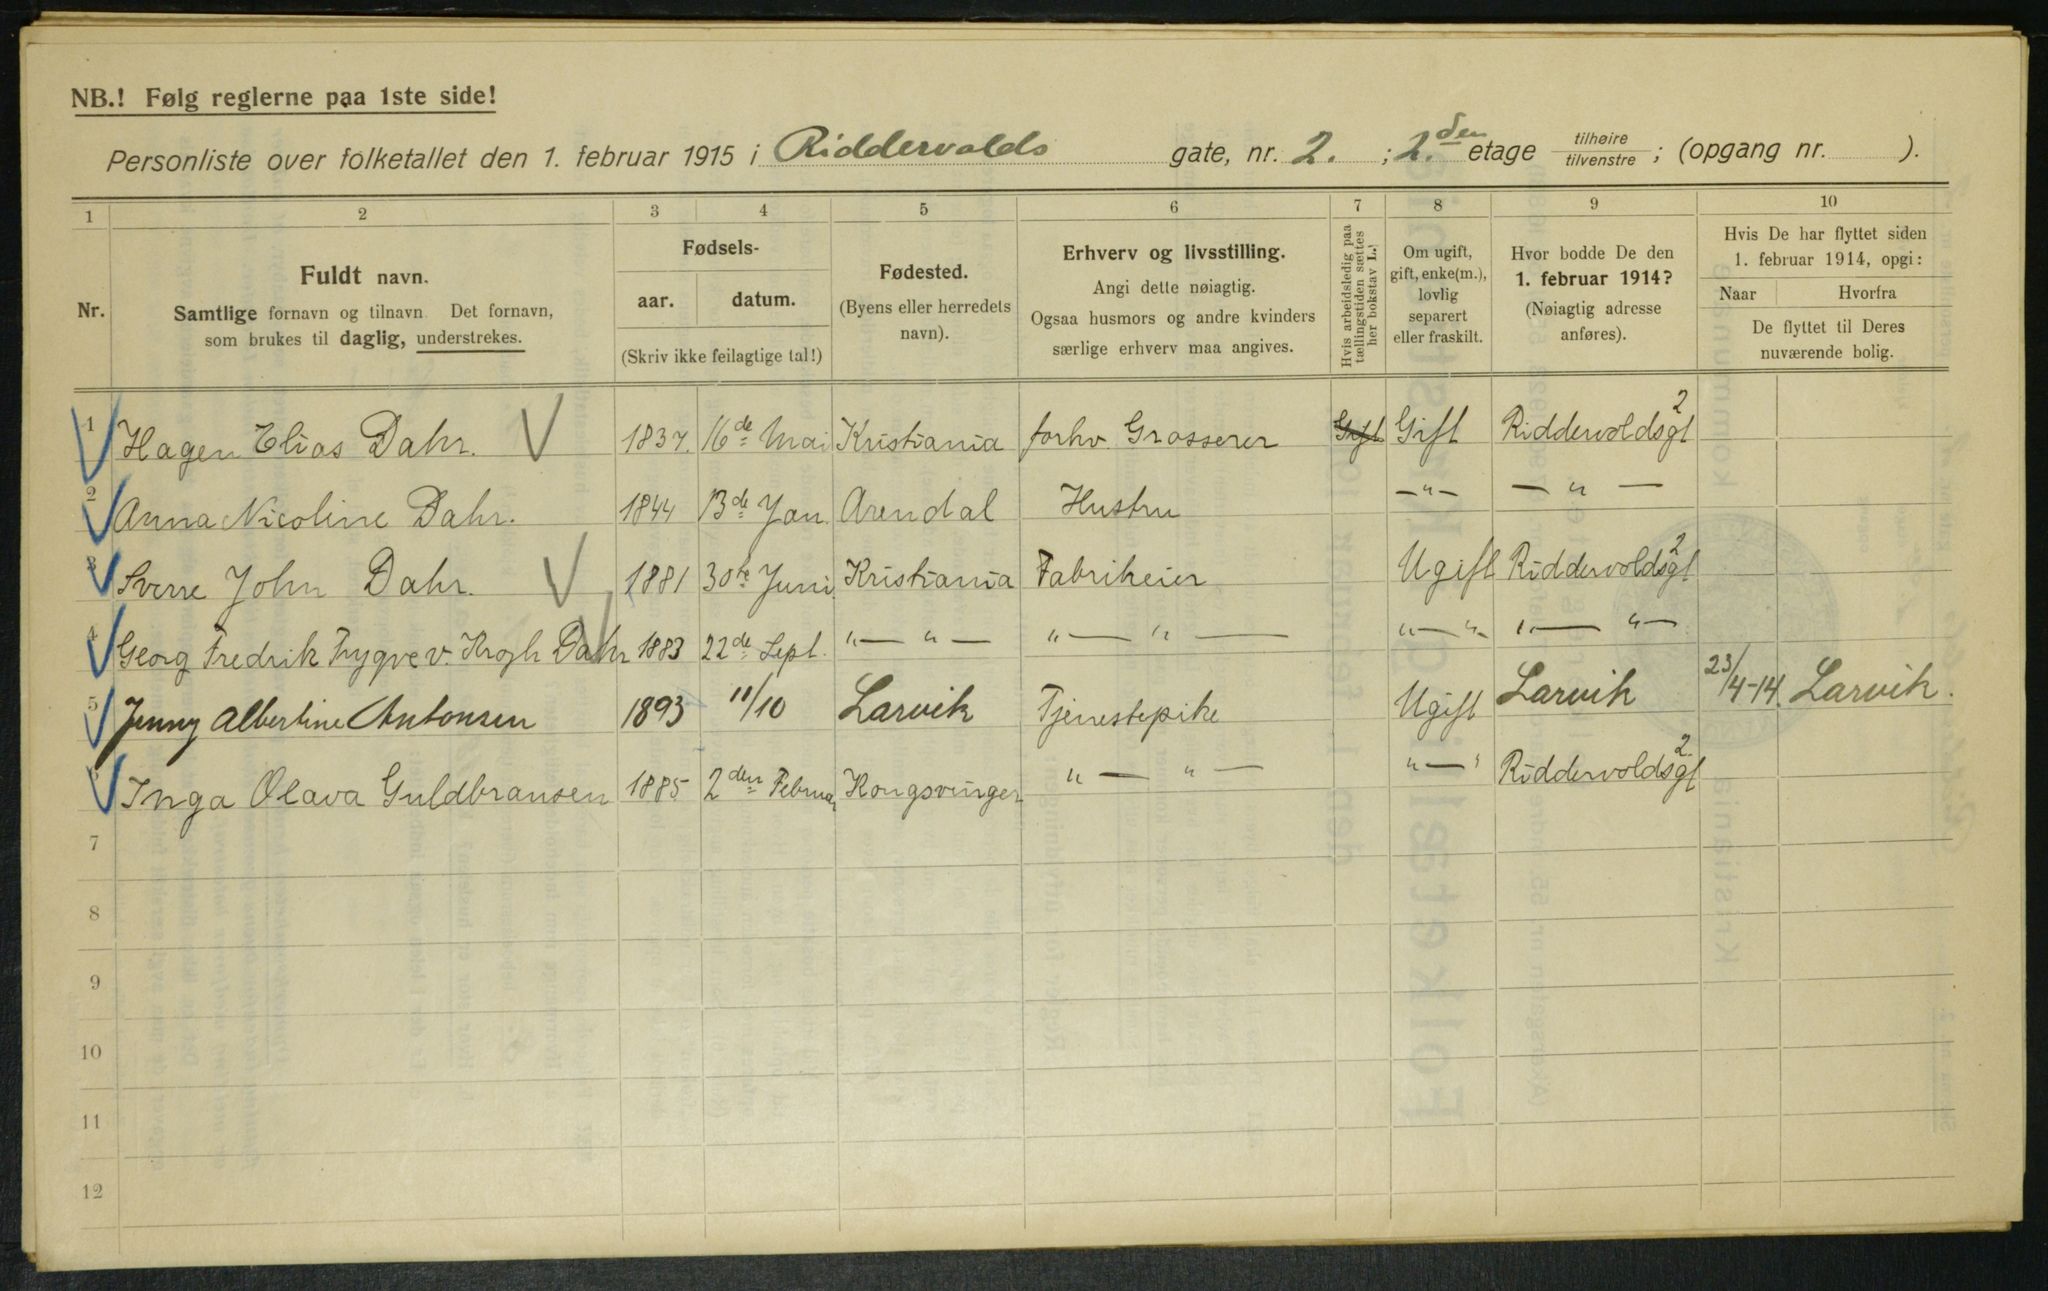 NB.! Følg reglerne paa 1ste side!
Personliste over folketallet den 1. februar 1915 i Riddervolds gate, nr. 2. ; 2.den etage tilhøire/tilvenstre ; (opgang nr. ).
1 2 3 4 5 6 7 8 9 10
Nr.
Fuldt navn.
Samtlige fornavn og tilnavn. Det fornavn,
som brukes til daglig, understrekes.
Fødsels-
aar. datum.
(Skriv ikke feilagtige tal!)
Fødested.
(Byens eller herredets
navn).
Erhverv og livsstilling.
Angi dette nøiagtig.
Ogsaa husmors og andre kvinders
særlige erhverv maa angives.
Hvis arbeidsledig paa
tællingstiden sættes
her bokstav L.!
Om ugift,
gift, enke(m.),
lovlig
separert
eller fraskilt.
Hvor bodde De den
1. februar 1914?
(Nøiagtig adresse
anføres).
Hvis De har flyttet siden
1. februar 1914, opgi:
Naar Hvorfra
De flyttet til Deres
nuværende bolig.
1 Hagen Elias Dahr. 1837. 16de Mai Kristiania forhv. Grosserer Gift Gift Riddervoldsgt 2
2 Anna Nicoline Dahr. 1844 13de Jan. Arendal Hustru —"— — " —
3 Sverre John Dahr. 1881 30te Juni Kristiania Fabrikeier Ugift Riddervoldsgt 2
4 Georg Fredrik Trygve v. Krogh Dahr 1883 22de Sept. "— " — "— " — "— " "— "—
5 Jenny Albertine Antonsen 1893 11/10 Larvik Tjenestepike Ugift Larvik 23/4-14. Larvik.
6 Inga Olava Guldbransen 1885 2den Februar Kongsvinger " — " — "— " Riddervoldsgt 2
7
8
9
10
11
12